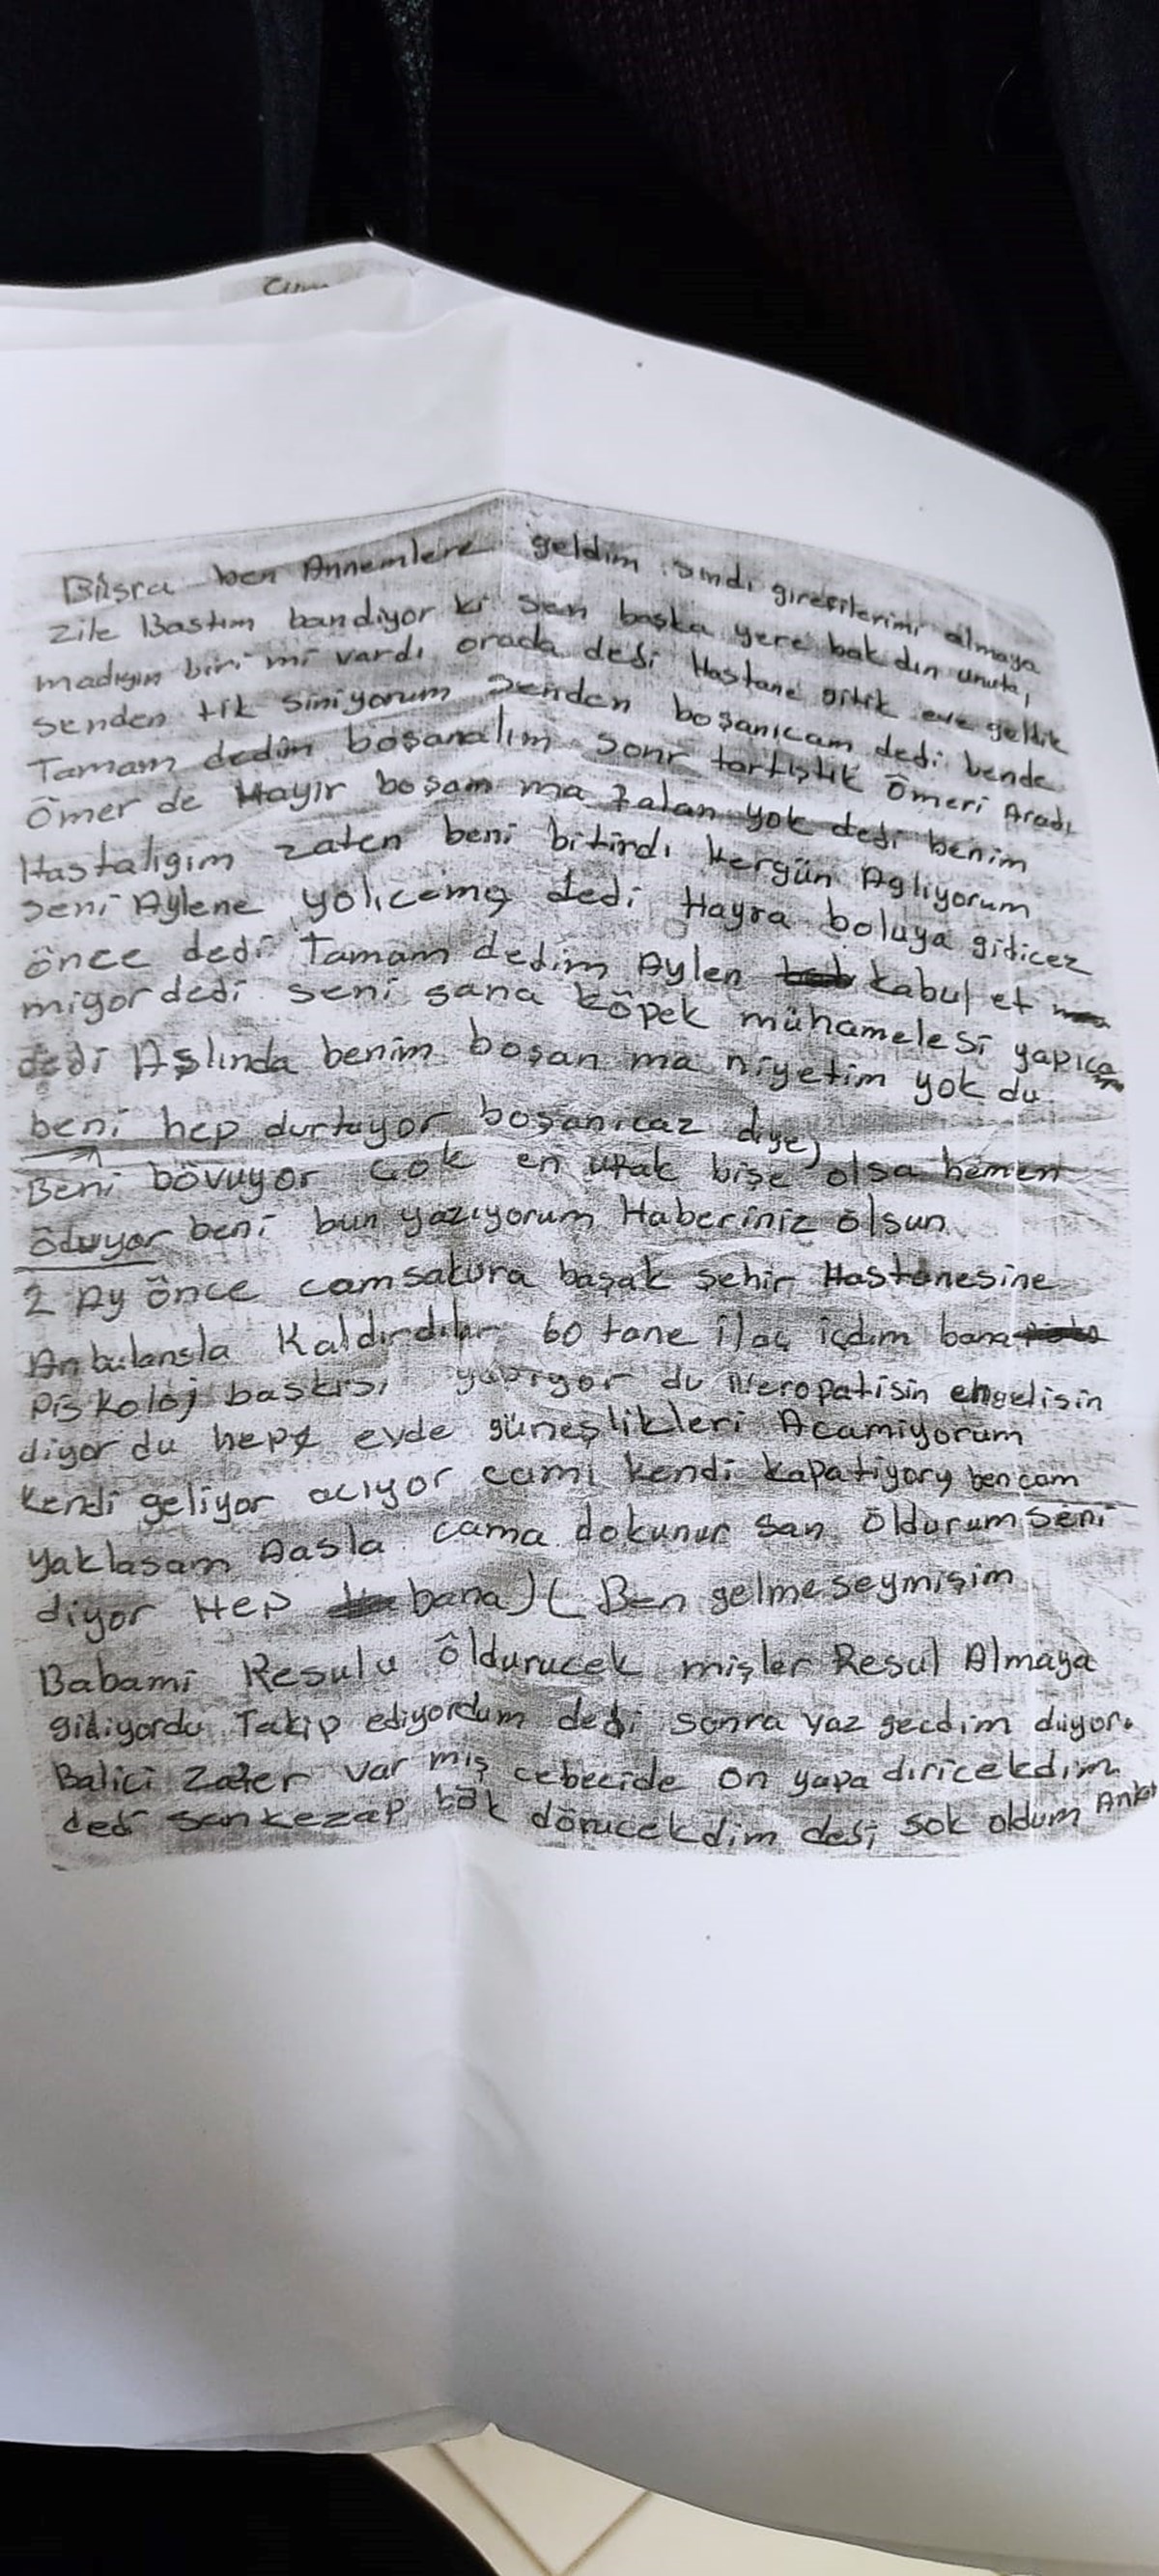 Büşra ben Annemlere geldim şindi giresilerimi almaya
zile Bastım bandiyor ki sen başka yere bakdın unuta,
madıgın biri mi vardı orada dedi Hastane gitik eve geldik
senden tik siniyorum Senden boşanıcam dedi bende
Tamam dedim boşanalım sonr tartıştık Ömeri Aradı
Ömer de Hayır boşam ma falan yok dedi benim
Hastaligim zaten beni bitirdi Hergün Agliyorum
seni Aylene yolıcamg dedi Hayra boluya gidicez
önce dedi Tamam dedim Aylen kabul et
miyor dedi seni sana köpek mühamelesi yapıca
dedi Aslında benim boşan ma niyetim yok du
beni hep durtuyor boşanıcaz diye)
Beni bövuyor Cok en ufak bişe olsa hemen
öduyor beni bun yazıyorum Haberiniz olsun
2 Ay önce camsakura başak şehir Hastanesine
Anbulansla Kaldırdılar 60 tane ilaç içdim bana
Piskoloj baskısı yapıyor du Neropatisin engelisin
diyor du hep evde güneşlikleri Acamiyorum
kendi geliyor acıyor camı kendi kapatiyory ben cam
yaklasam Aasla cama dokunur san öldurum seni
diyor Hep bana) ( Ben gelmeseymişim
Babami Resulu öldurucek mişler Resul Almaya
gidiyordu Takip ediyordum dedi sonra vaz gecdim diyor.
Balici Zafer var mış cebecide on yapa diricekdim
dedi sankezap bak dörucekdim dedi sok oldum